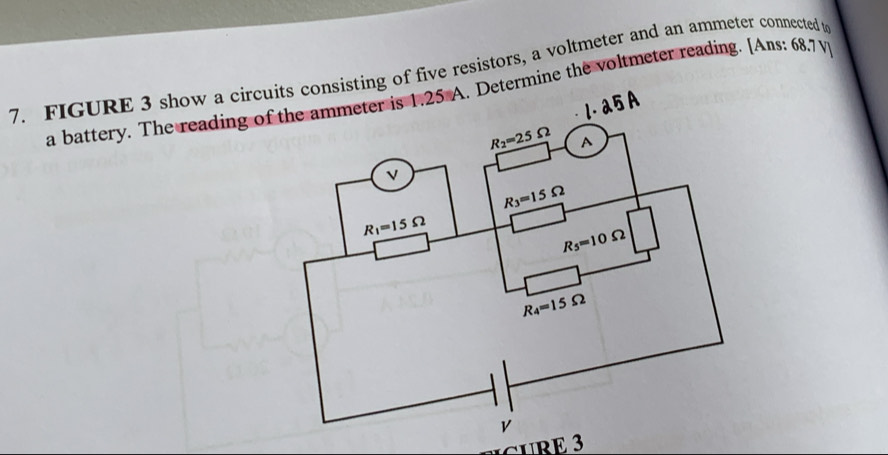 7. FIGURE 3 show a circuits consisting of five resistors, a voltmeter and an ammeter connected to
a battery. The reading of the ammeter is 1.25 A. Determine the voltmeter reading. [Ans: 68.7 V]
1.25A
R₂=25 Ω
A
V
R₃=15 Ω
R₁=15 Ω
R₅=10 Ω
R₄=15 Ω
V
FIGURE 3